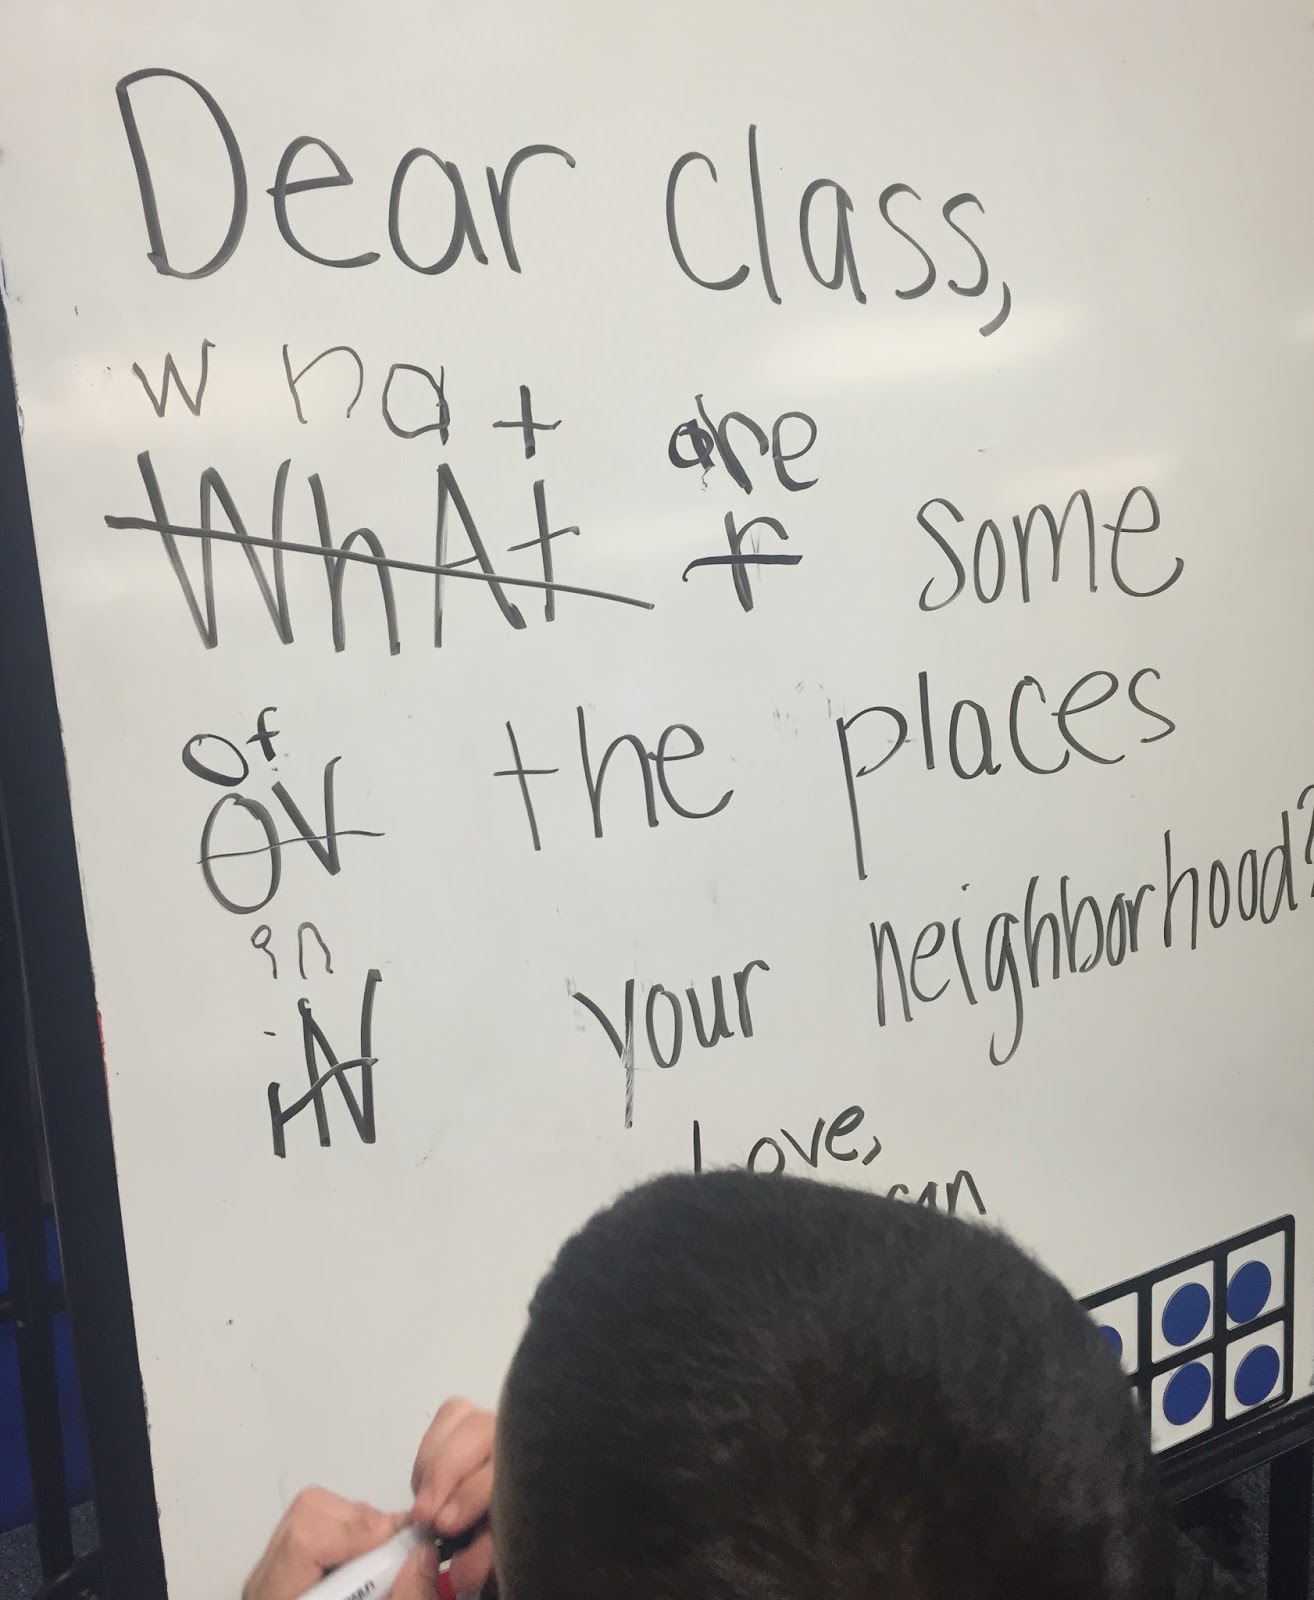 Dear class,
what are
WhAt r some
of
ov the places
in
iN your neighborhood?
Love,